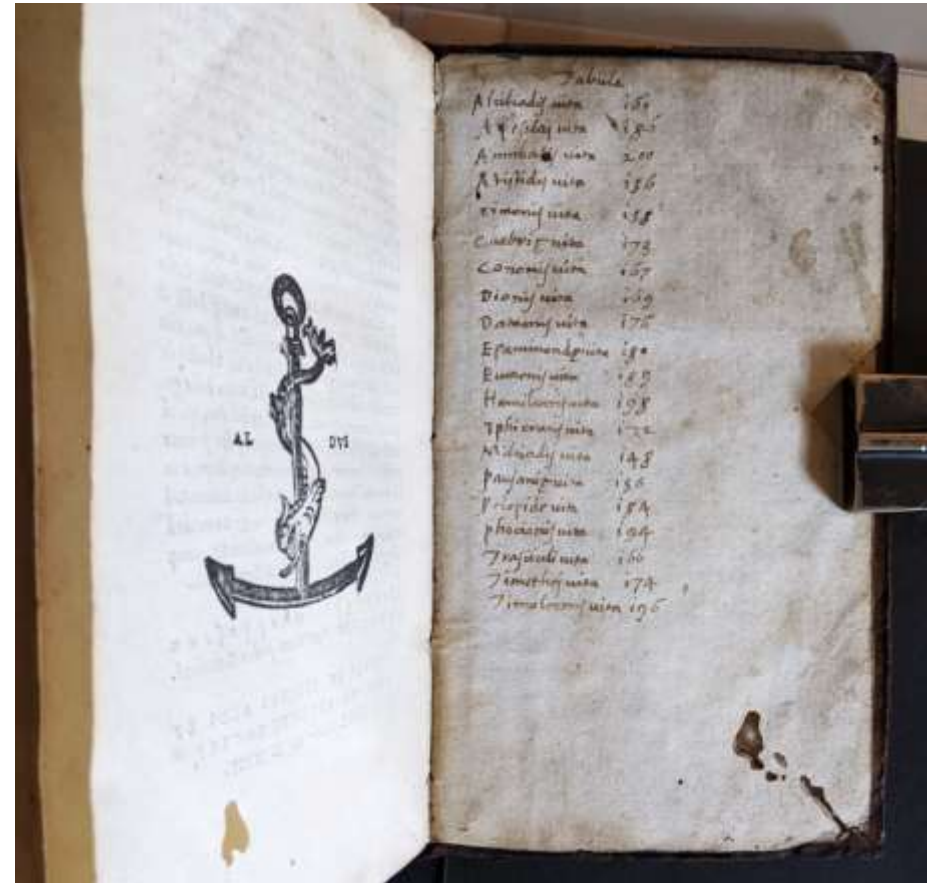 AL DVS
Tabula
Alcibiadis uita 161
Agesilai uita 186
Annibalis uita 200
Aristidis uita 156
Cimonis uita 158
Cabrię uita 173
Cononis uita 167
Dionis uita 169
Datamis uita 176
Epaminondę uita 180
Eumenis uita 189
Hamilcaris uita 198
Iphicratis uita 172
Milciadis uita 148
Pausanię uita 156
Pelopidę uita 184
phocionis uita 194
Trasibuli uita 166
Timothei uita 174
Timoleonis uita 196